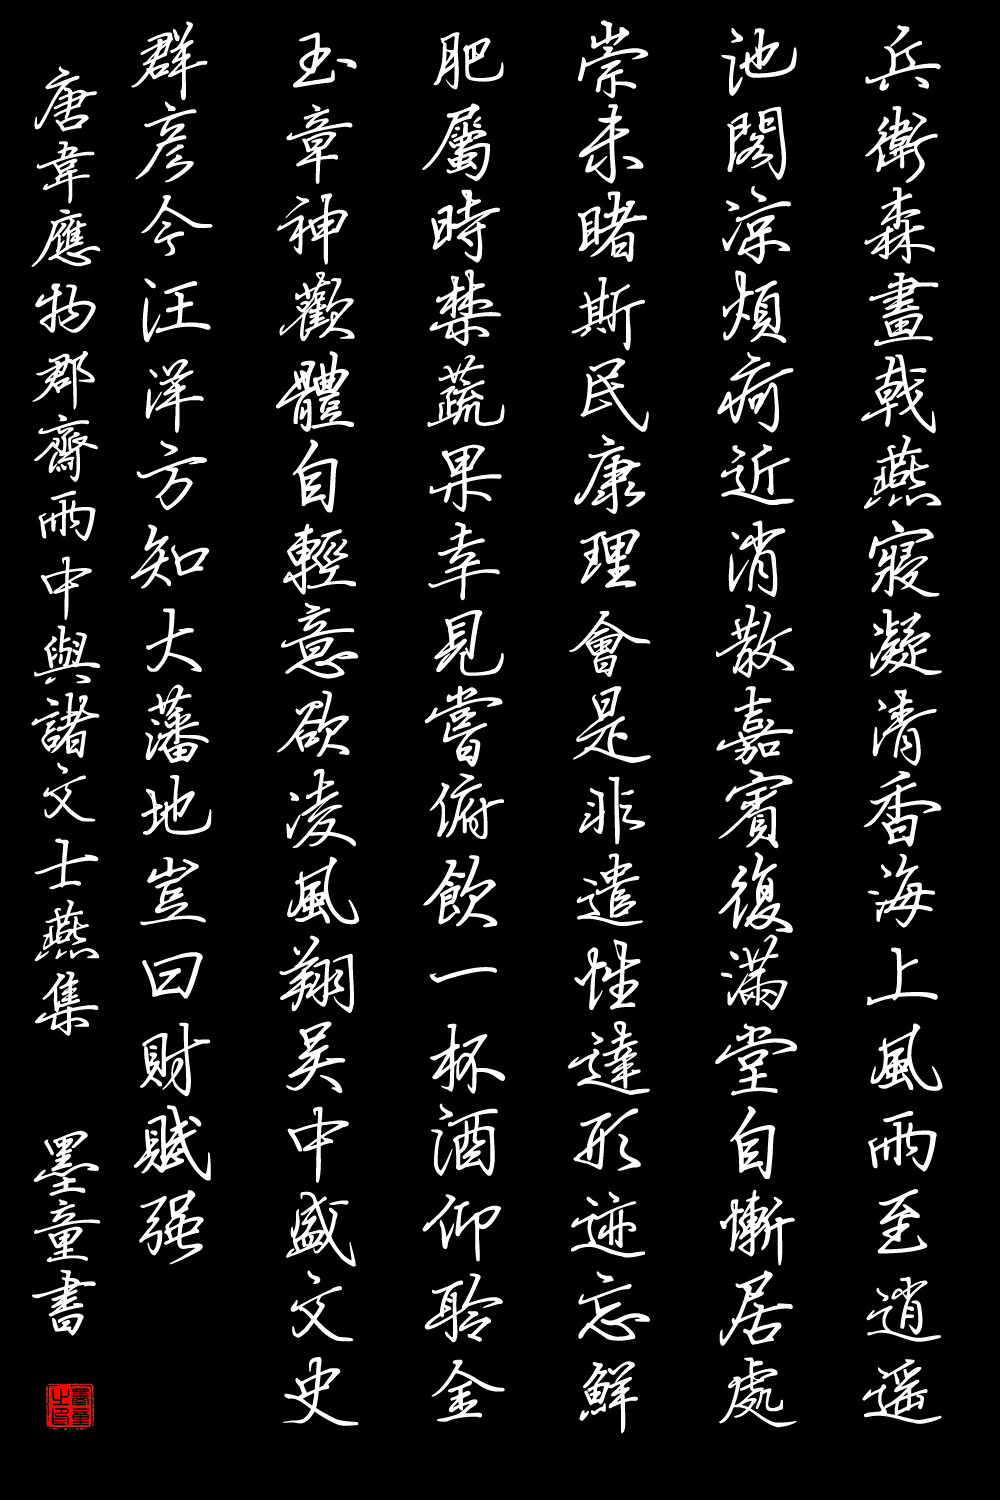 兵衛森畫戟燕寢凝清香海上風雨至逍遥
池閣凉煩疴近消散嘉賓復滿堂自慚居處
崇未睹斯民康理會是非遣性達形迹忘鮮
肥屬時禁蔬果幸見嘗俯飲一杯酒仰聆金
玉章神歡體自輕意欲凌風翔吴中盛文史
群彦今汪洋方知大藩地豈曰財賦强
唐韋應物郡齋雨中與諸文士燕集 墨童書
墨童之印